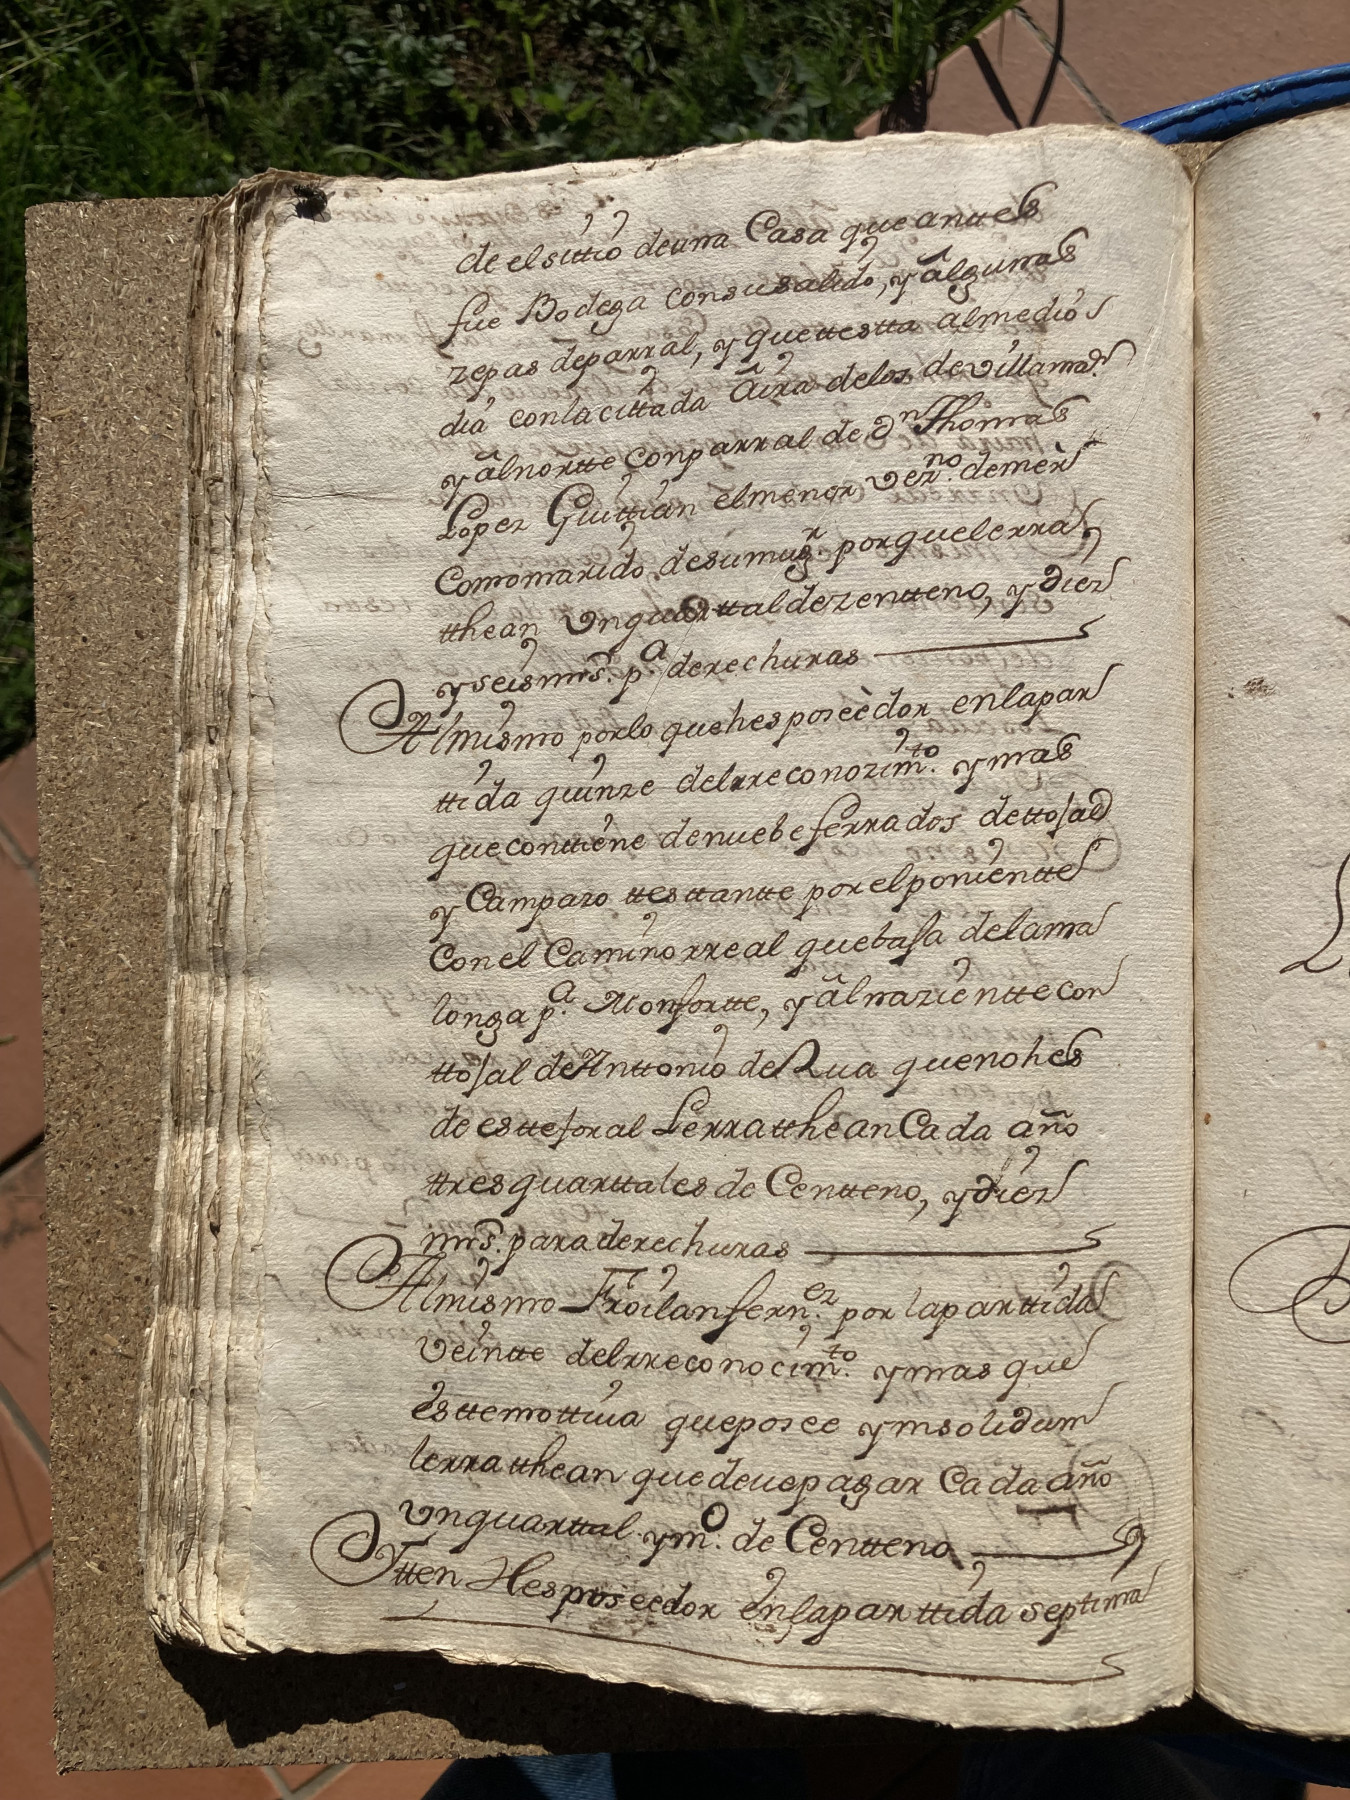 de el sittio de una Casa que anttes
fue Bodega con su salido, y algunas
zepas de parral, y que ttestta al medio
dia con la cittada Aira de los de villamar.
y al nortte con parral de Dn Thomas
Lopez Guittian el menor vezno. de mer
como marido de su mugr. porque le rra
tthean un quarttal de zentteno, y diez
y seis mrs. pa. derechuras
Al mismo por lo que hes poseedor en la par
ttida quinze del rreconozimto. y mas
que conttiene de nuebe ferrados de ttosal
y Campazo ttesttantte por el ponientte
con el Camino rreal que basa de lama
longa pa. Monfortte, y al nazientte con
ttosal de Anttonio de Rua que no hes
de estte foral Le rratthean Cada año
ttres quarttales de Centteno, y diez
mrs. para derechuras
Al mismo Froilan fernez. por la parttida
veintte del rreconocimto. y mas que
esttemottiua que posee ynsolidum
le rratthean que deue pagar Cada año
un quarttal y mo. de Centteno
Itten Hes poseedor en la parttida septima